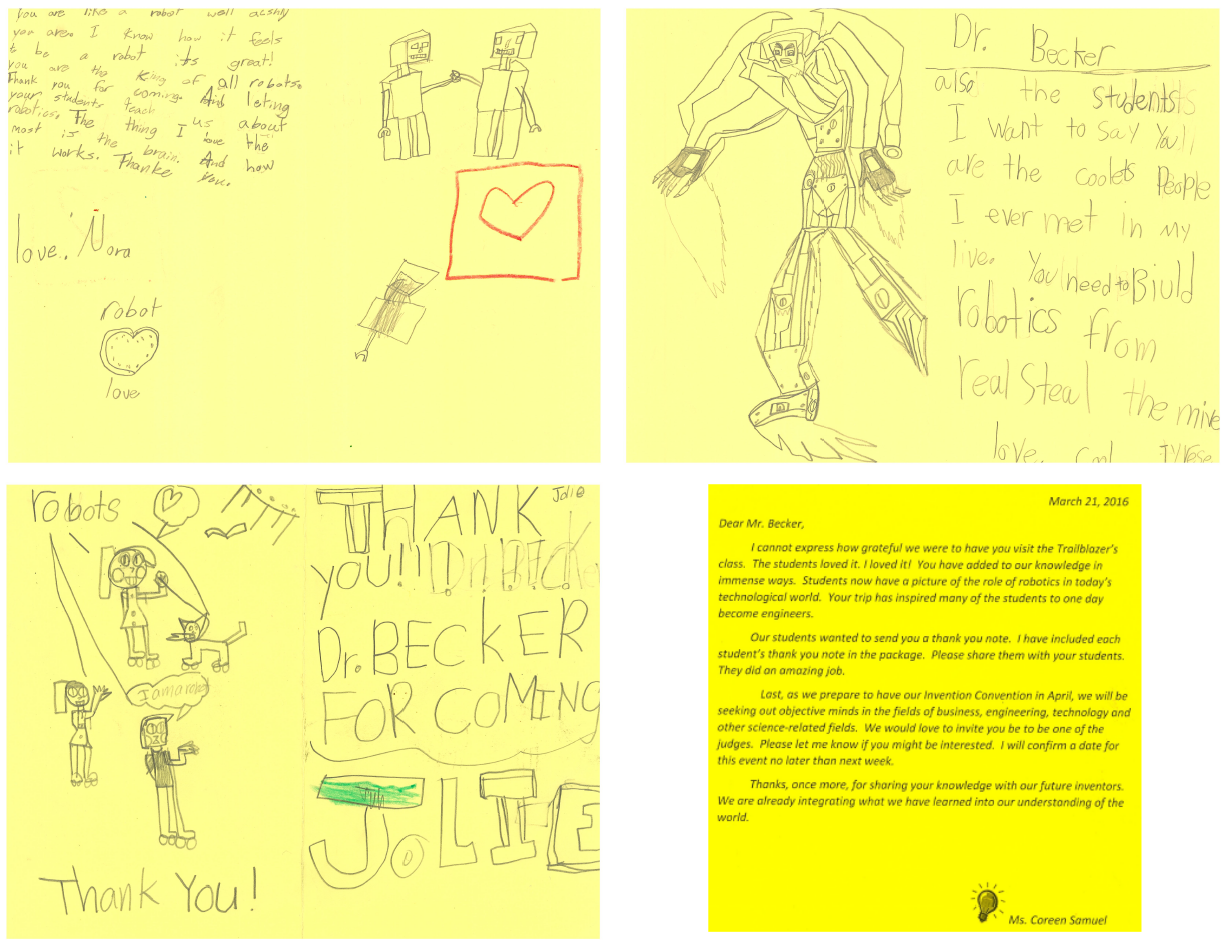 you are like a robot well acshly
you are. I know how it feels
t be a robot its great!
you are the King of all robots.
Thank you for coming. And leting
your students teach us about
robotics. The thing I love the
most is the brain. And how
it works. Thanke you.
love, Nora
robot
love
Dr. Becker
also the students
I want to say You
are the coolets People
I ever met in my
live. You need to Biuld
robotics from
real Steal the mive
love, Tyrese
robots
I am a robot
Thank You!
Jolie
THANK
you!!! Dr. BECK
Dr. BECKER
FOR COMING
JOLIE
March 21, 2016
Dear Mr. Becker,
I cannot express how grateful we were to have you visit the Trailblazer's
class. The students loved it. I loved it! You have added to our knowledge in
immense ways. Students now have a picture of the role of robotics in today's
technological world. Your trip has inspired many of the students to one day
become engineers.
Our students wanted to send you a thank you note. I have included each
student's thank you note in the package. Please share them with your students.
They did an amazing job.
Last, as we prepare to have our Invention Convention in April, we will be
seeking out objective minds in the fields of business, engineering, technology and
other science-related fields. We would love to invite you be to be one of the
judges. Please let me know if you might be interested. I will confirm a date for
this event no later than next week.
Thanks, once more, for sharing your knowledge with our future inventors.
We are already integrating what we have learned into our understanding of the
world.
Ms. Coreen Samuel